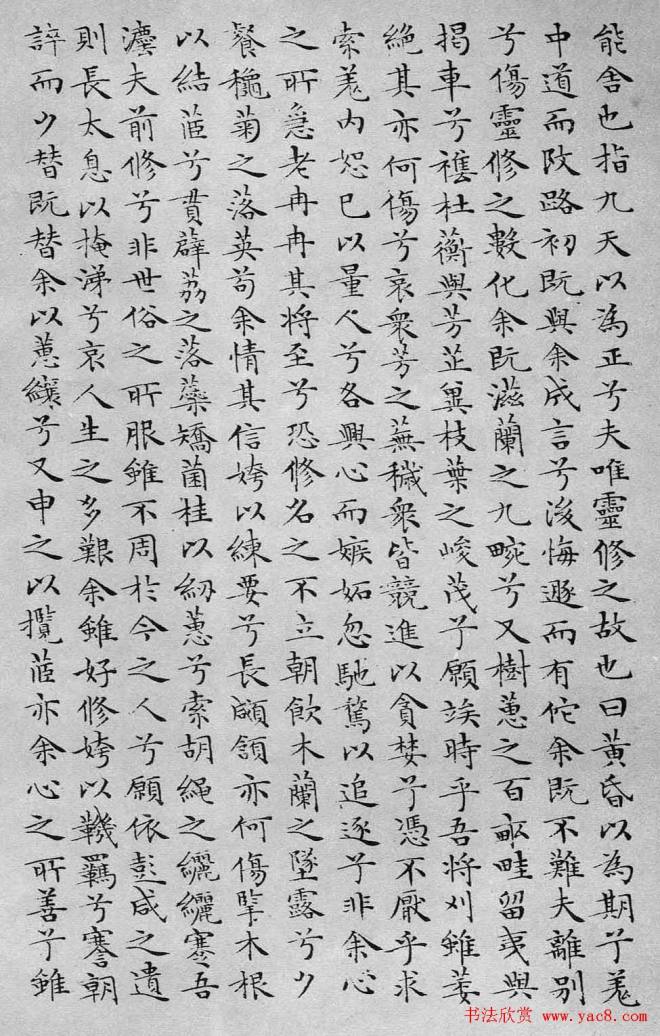 能舍也指九天以為正兮夫唯靈修之故也曰黃昏以為期兮羌
中道而改路初既與余成言兮後悔遯而有佗余既不難夫離別
兮傷靈修之數化余既滋蘭之九畹兮又樹蕙之百畝畦留夷與
揭車兮襍杜蘅與芳芷冀枝葉之峻茂兮願竢時乎吾將刈雖萎
絕其亦何傷兮哀衆芳之蕪穢衆皆競進以貪婪兮憑不厭乎求
索羌內恕己以量人兮各興心而嫉妬忽馳騖以追逐兮非余心
之所急老冉冉其將至兮恐修名之不立朝飲木蘭之墜露兮夕
餐穐菊之落英苟余情其信姱以練要兮長顑頷亦何傷擥木根
以結茝兮貫薜荔之落蘂矯菌桂以紉蕙兮索胡繩之纚纚謇吾
灋夫前修兮非世俗之所服雖不周於今之人兮願依彭咸之遺
則長太息以掩涕兮哀人生之多艱余雖好修姱以鞿羈兮謇朝
誶而夕替既替余以蕙纕兮又申之以攬茝亦余心之所善兮雖
书法欣赏
www.yac8.com